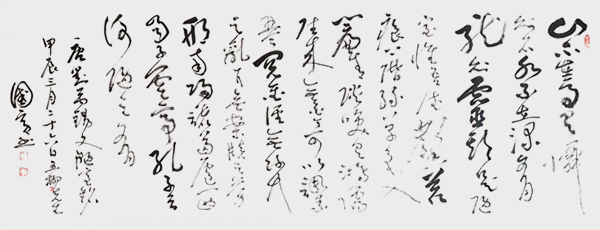 山不在高有仙
则名水不在深有
龙则灵斯是陋
室惟吾德馨苔
痕上阶绿草色入
帘青谈笑有鸿儒
往来无白丁可以调素
琴阅金经无丝竹
之乱耳无案牍之劳
形南阳诸葛庐西
蜀子云亭孔子云
何陋之有
唐刘禹锡文陋室铭
甲辰三月二十六日五柳
国书